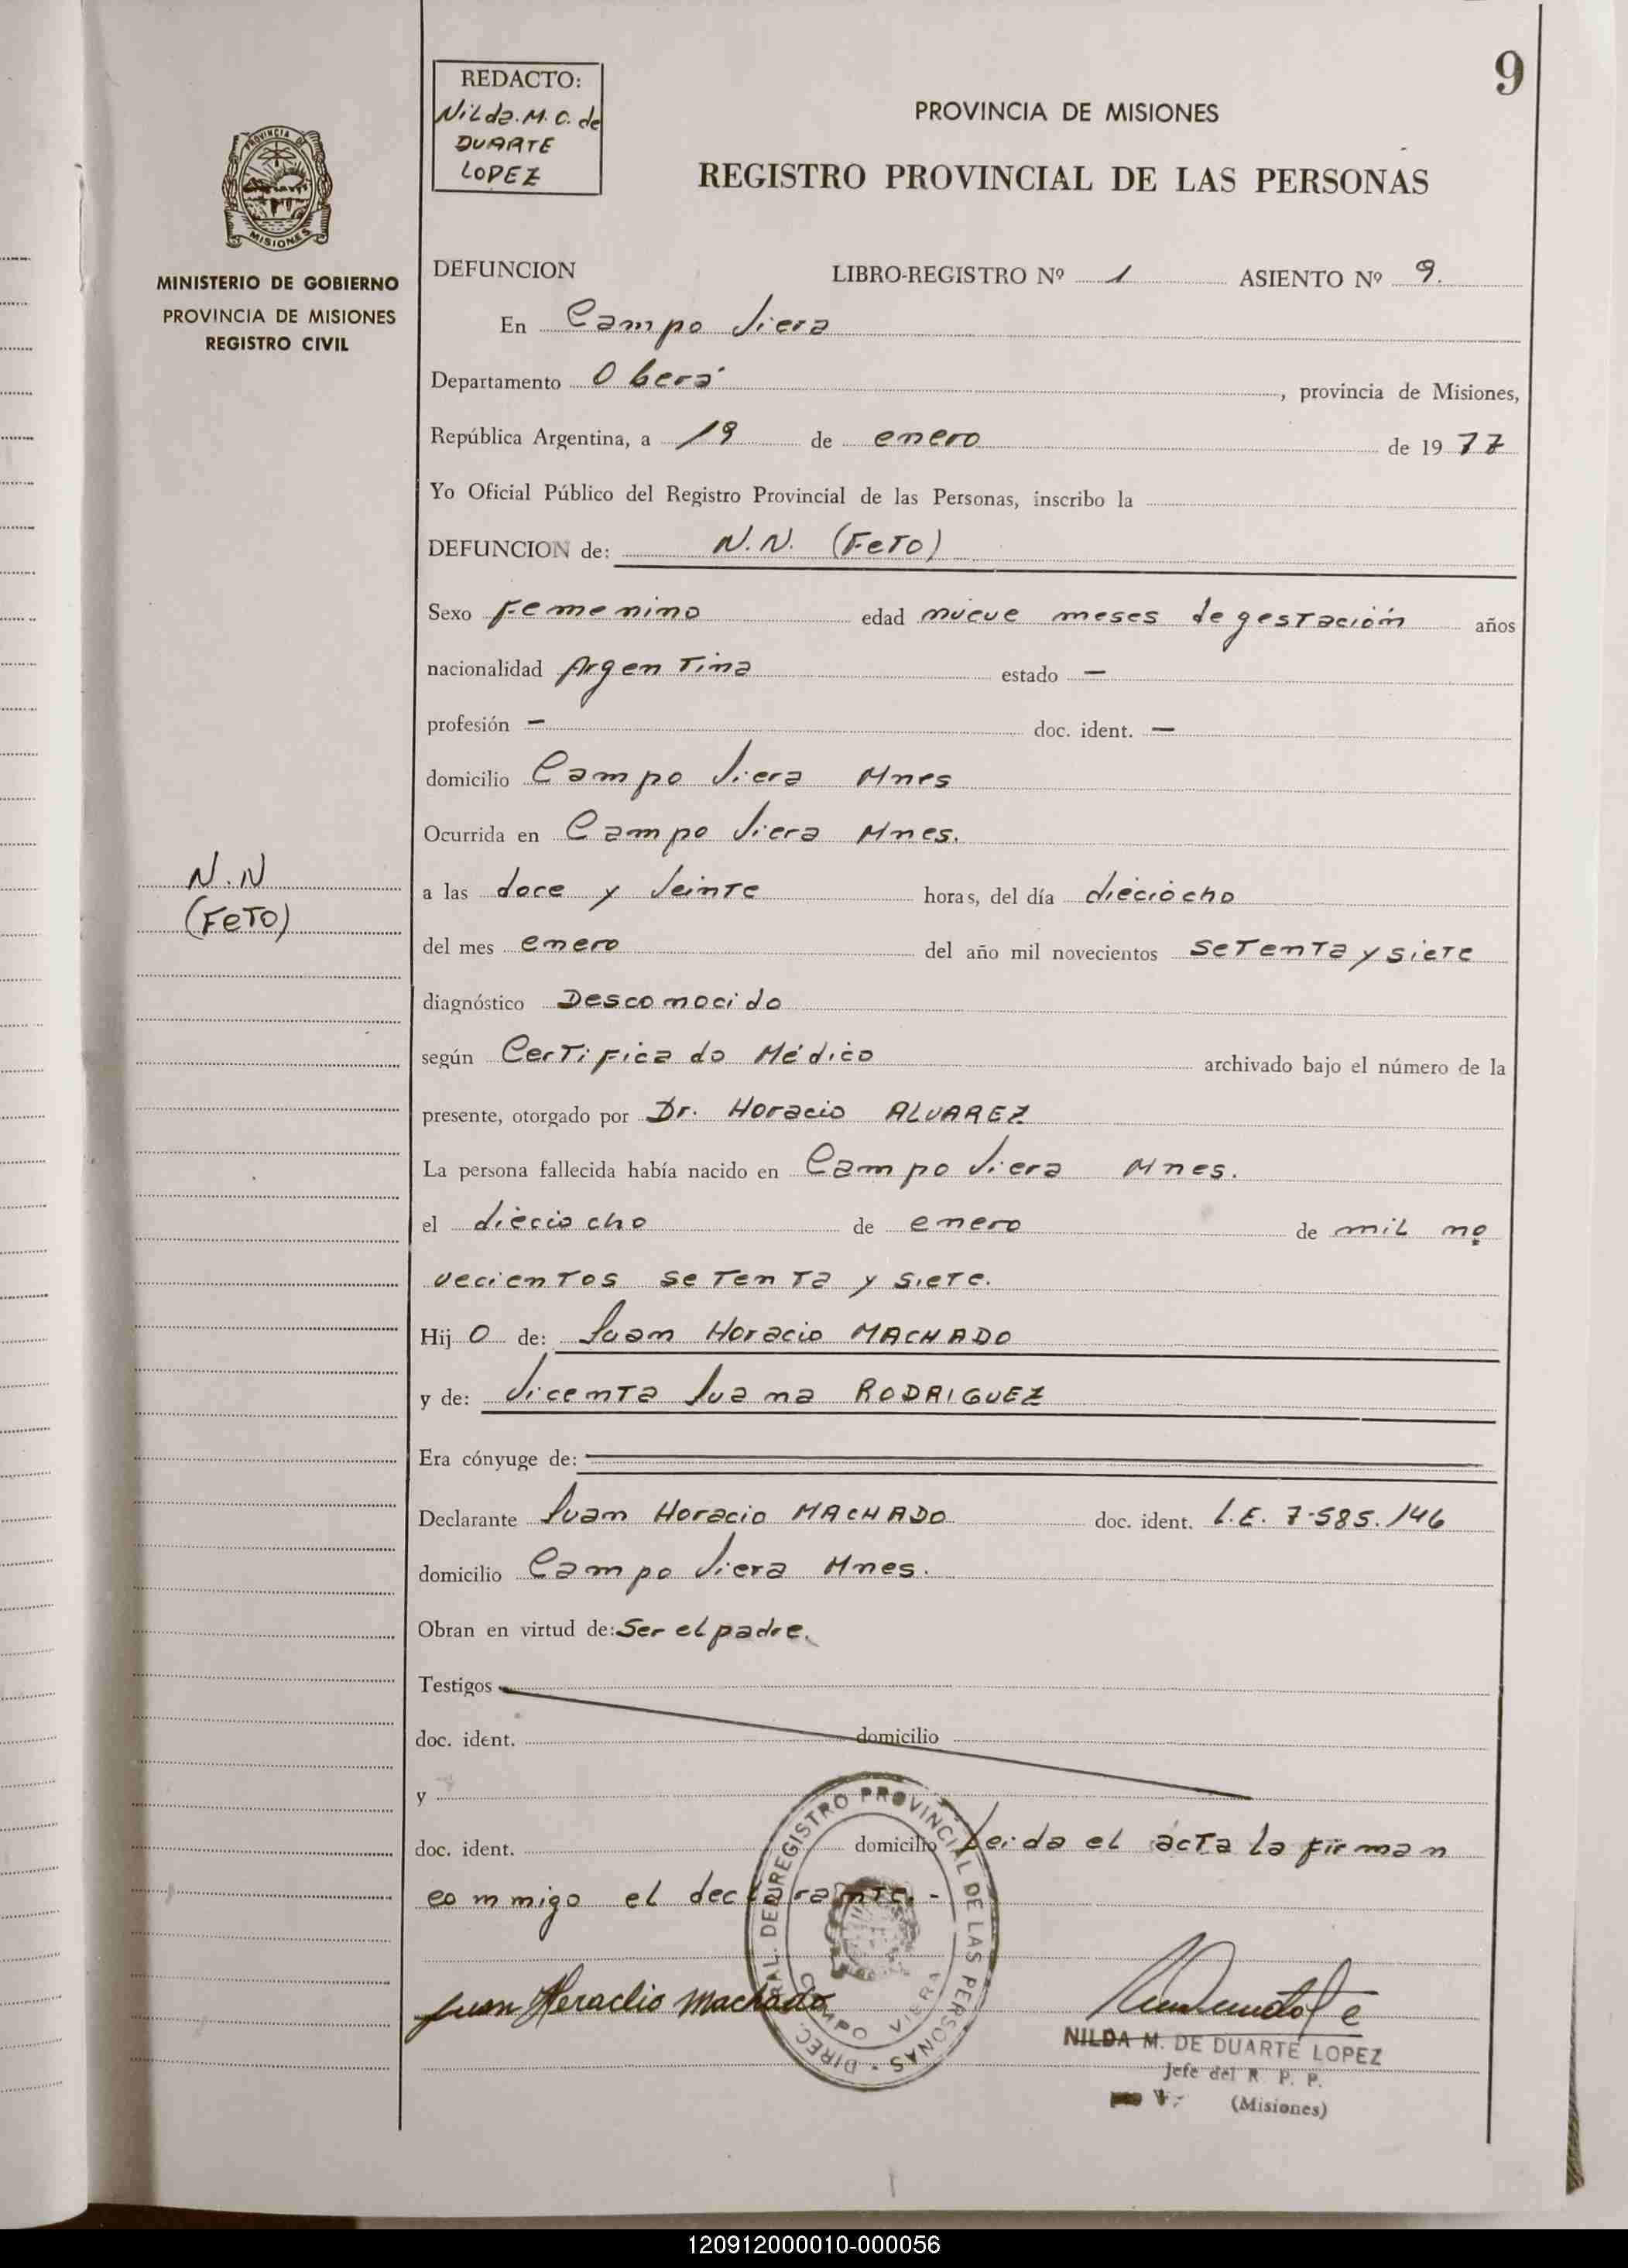 9
REDACTO:
Nilda.M.C. de
DUARTE
LOPEZ
PROVINCIA DE MISIONES
REGISTRO PROVINCIAL DE LAS PERSONAS
PROVINCIA DE
MISIONES
MINISTERIO DE GOBIERNO
PROVINCIA DE MISIONES
REGISTRO CIVIL
DEFUNCION LIBRO-REGISTRO Nº 1 ASIENTO Nº 9.
En Campo Viera
Departamento Oberá , provincia de Misiones,
República Argentina, a 19 de enero de 1977
Yo Oficial Público del Registro Provincial de las Personas, inscribo la
DEFUNCION de: N.N. (FeTO)
Sexo Femenino edad nueve meses de gestación años
nacionalidad Argentina estado —
profesión — doc. ident. —
domicilio Campo Viera Mnes
Ocurrida en Campo Viera Mnes.
N.N
(FeTO)
a las doce y veinte horas, del día dieciocho
del mes enero del año mil novecientos setenta y siete
diagnóstico Desconocido
según Certificado Médico archivado bajo el número de la
presente, otorgado por Dr. Horacio ALVAREZ
La persona fallecida había nacido en Campo Viera Mnes.
el dieciocho de enero de mil no
vecientos setenta y siete.
Hijo de: Juan Horacio MACHADO
y de: Vicenta Juana RODRIGUEZ
Era cónyuge de:
Declarante Juan Horacio MACHADO doc. ident. L.E. 7.585.146
domicilio Campo Viera Mnes.
Obran en virtud de: Ser el padre.
Testigos
doc. ident. domicilio
y
doc. ident. domicilio Leida el acta la firman
conmigo el declarante. -
DIREC. GRAL. DEL REGISTRO PROVINCIAL DE LAS PERSONAS
CAMPO VIERA
Juan Heraclio Machado
NILDA M. DE DUARTE LOPEZ
Jefe del R. P. P.
(Misiones)
120912000010-000056